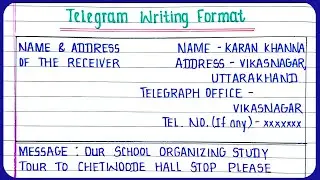 Telegram Writing Format
NAME & ADDRESS
OF THE RECEIVER
NAME - KARAN KHANNA
ADDRESS - VIKASNAGAR,
UTTARAKHAND
TELEGRAPH OFFICE -
VIKASNAGAR
TEL. NO. (If any) - xxxxxxx
MESSAGE : OUR SCHOOL ORGANIZING STUDY
TOUR TO CHETWOODE HALL STOP PLEASE